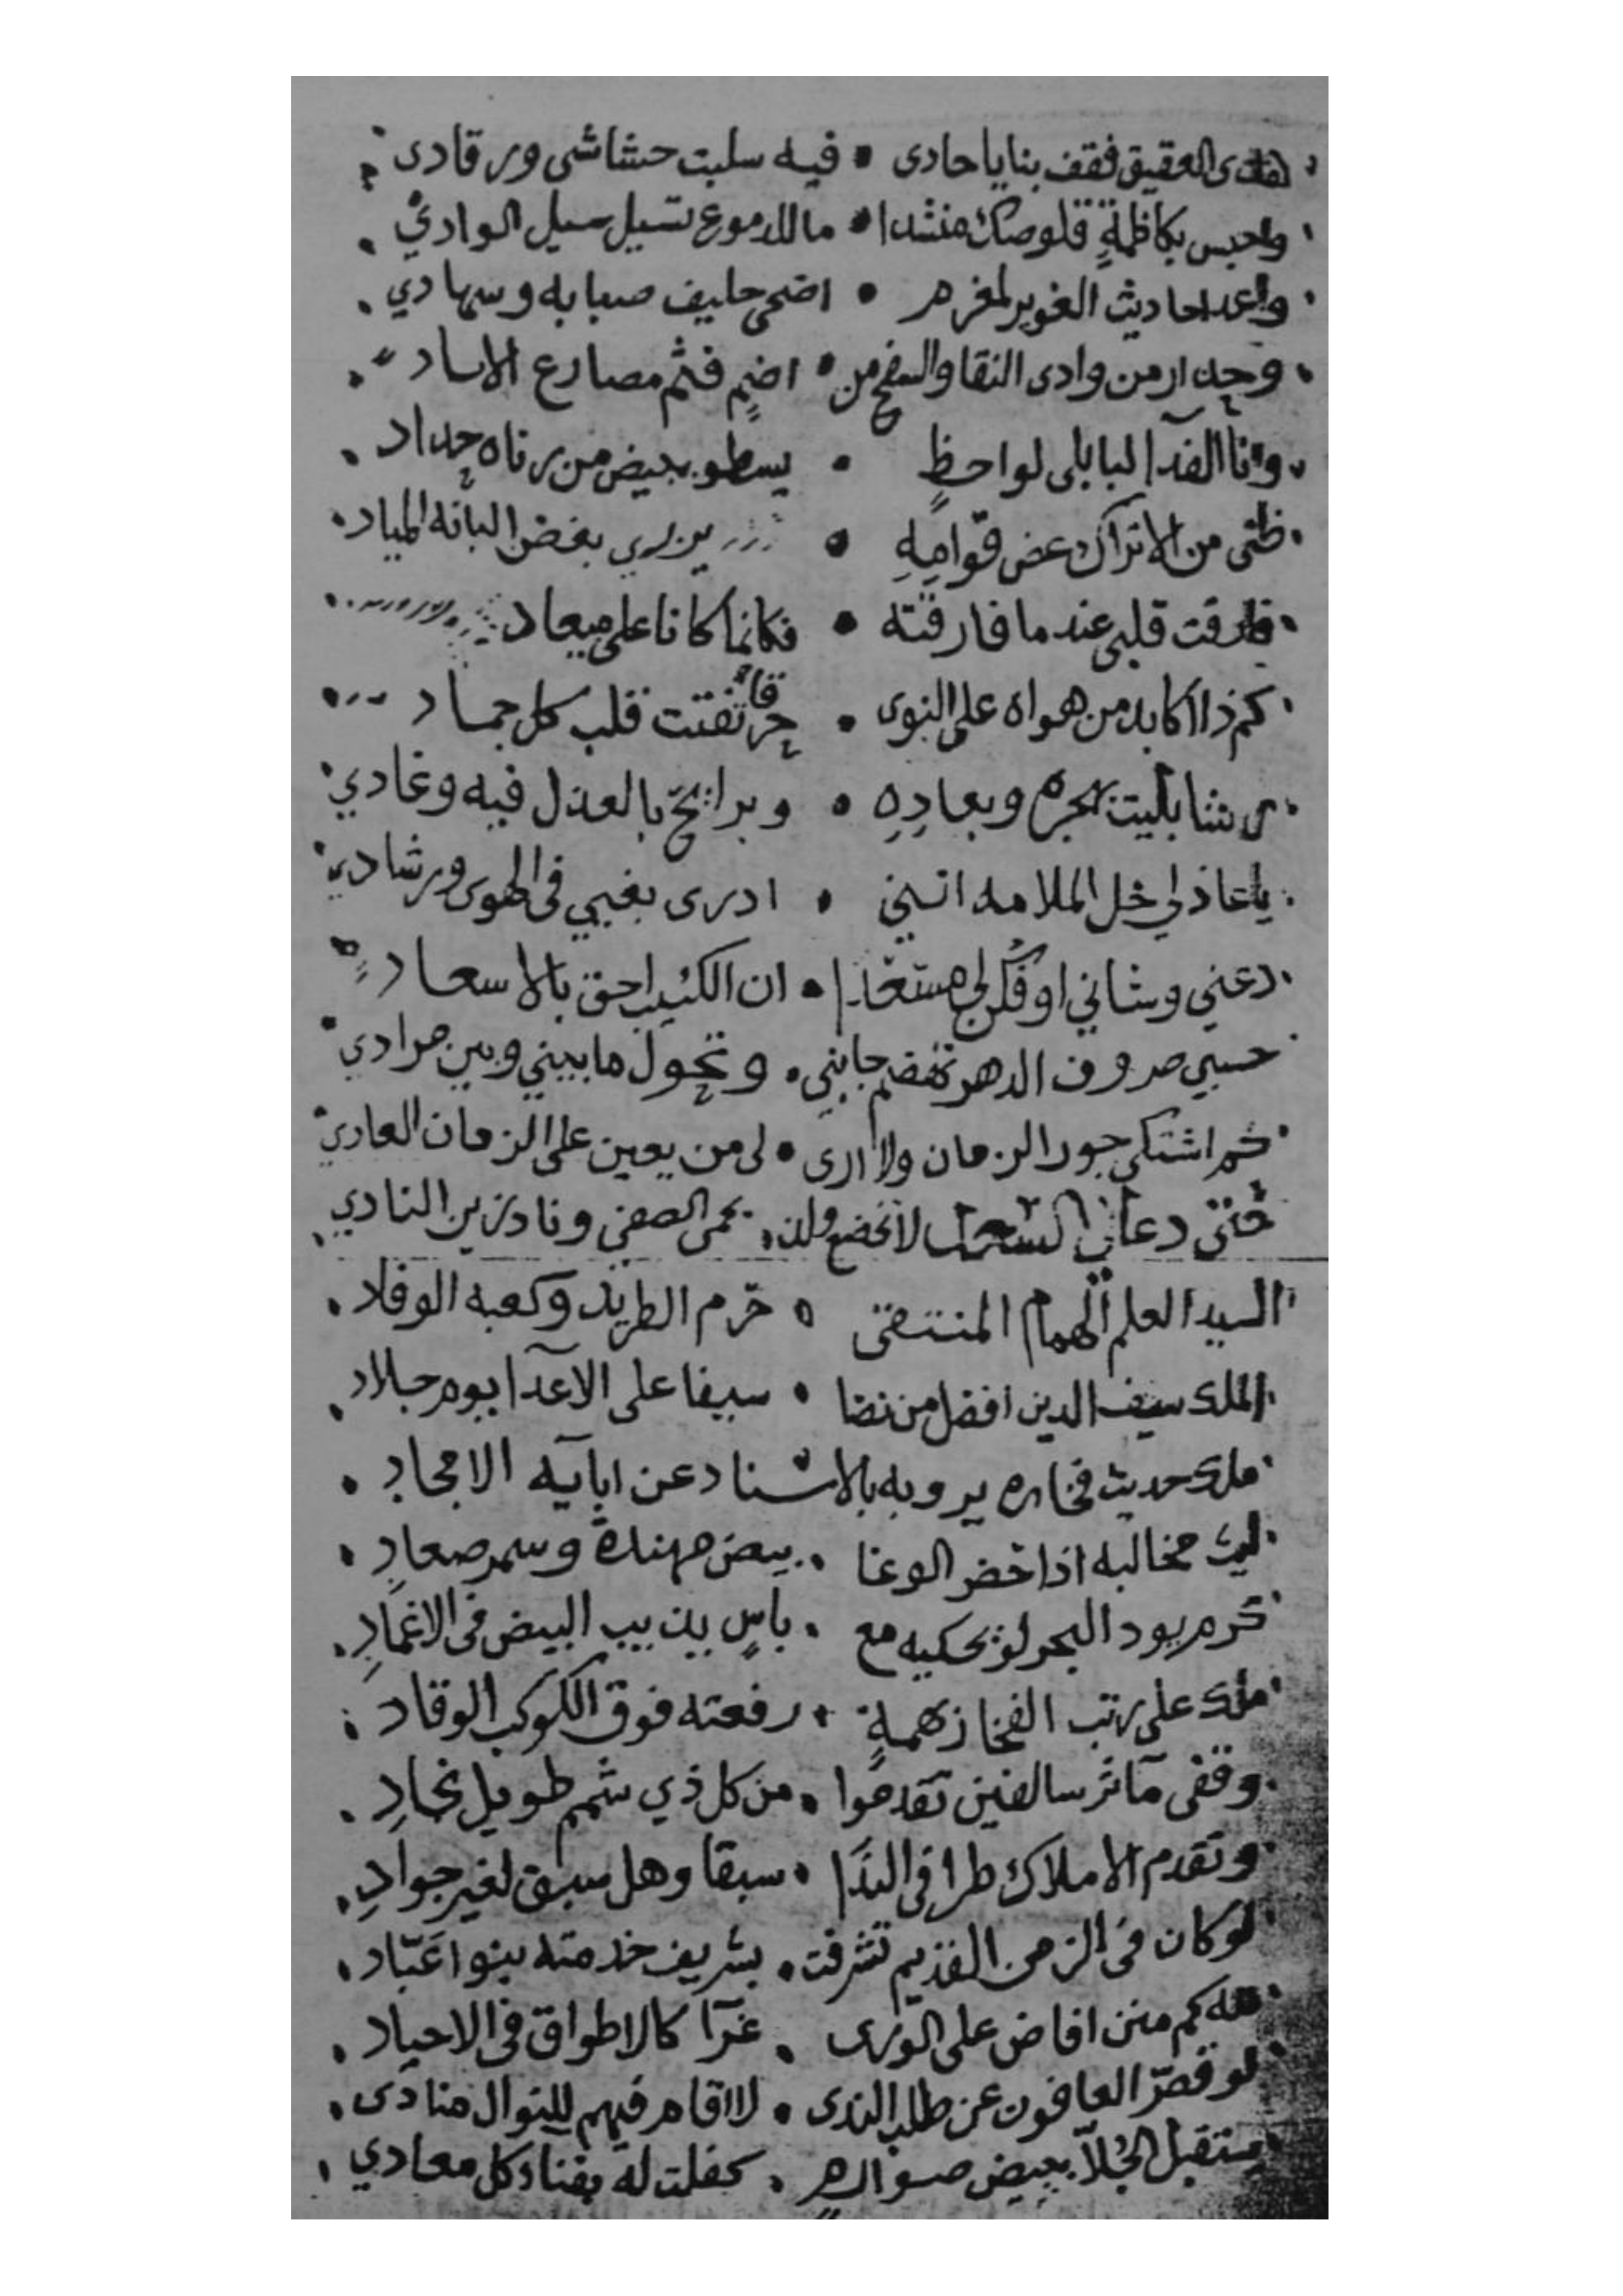 هذى العقيق فقف بنا يا حادى • فيه سلبت حشاشى ورقادى
واحبس بكاظمةٍ قلوصك منشدا • ما للدموع تسيل سيل الوادي
واعد احاديث الغوير لمغرم • اضحى حليف صبابه وسهادي
وحدار من وادى النقا والسفح من • اضمٍ فثم مصارع الاساد
وانا الفدآ لبابلى لواحظٍ • يسطو ببيض من رناه حداد
ظبى من الاتراك غض قوامِهِ • يزري بغض البانه المياد
فارقت قلبى عند ما فارقته • فكانما كانا على ميعاد
كم ذا اكابد من هواه على النوى • حرقا تفتت قلب كل جماد
رشا بليت بهجره وبعادِهِ • وبرائح بالعذل فيه وغادي
يا عاذلي خل الملامه انني • ادرى بغيي فى الهوى ورشادي
دعني وشاني او فكن لى مسعدا • ان الكئيب احق بالاسعاد
حسبي صروف الدهر تهضم جانبى • وتحول ما بيني وبين مرادي
كم اشتكى جور الزمان ولا ارى • لى من يعين على الزمان العادي
حتى دعاني السعد لا تخضع ولذ • بحمى الصفي وناد زين النادي
السيد العلم الهمام المنتقى • حرم الطريد وكعبه الوفاد
الملك سيف الدين افضل من نضا • سيفا على الاعدآ يوم جلاد
ملك حديث فخاره يرويه بالاسناد عن ابآيه الامجاد
ليث مخالبه اذا حضر الوغا • بيض مهندة وسمر صعاد
كرم يود البحر لو يحكيه مع • باسٍ يذيب البيض فى الاغمادِ
ملك على رتب الفخار بهمةٍ • رفعته فوق الكوكب الوقاد
وقفى مآثر سالفين تقدموا • من كل ذي شمم طويل نجادِ
وتقدم الاملاك طرا فى الندا • سبقا وهل سبق لغير جوادِ
لو كان فى الزمن القديم تشرفت • بشريف خدمته بنوا عبّاد
لله كم منن افاض على الورى • غرّا كالاطواق فى الاجياد
لو قصّر العافون عن طلب الندى • لاقام فيهم للنوال منادى
يستقبل الجُلّا ببيض صوارم • كفلت له بفناء كل معادي